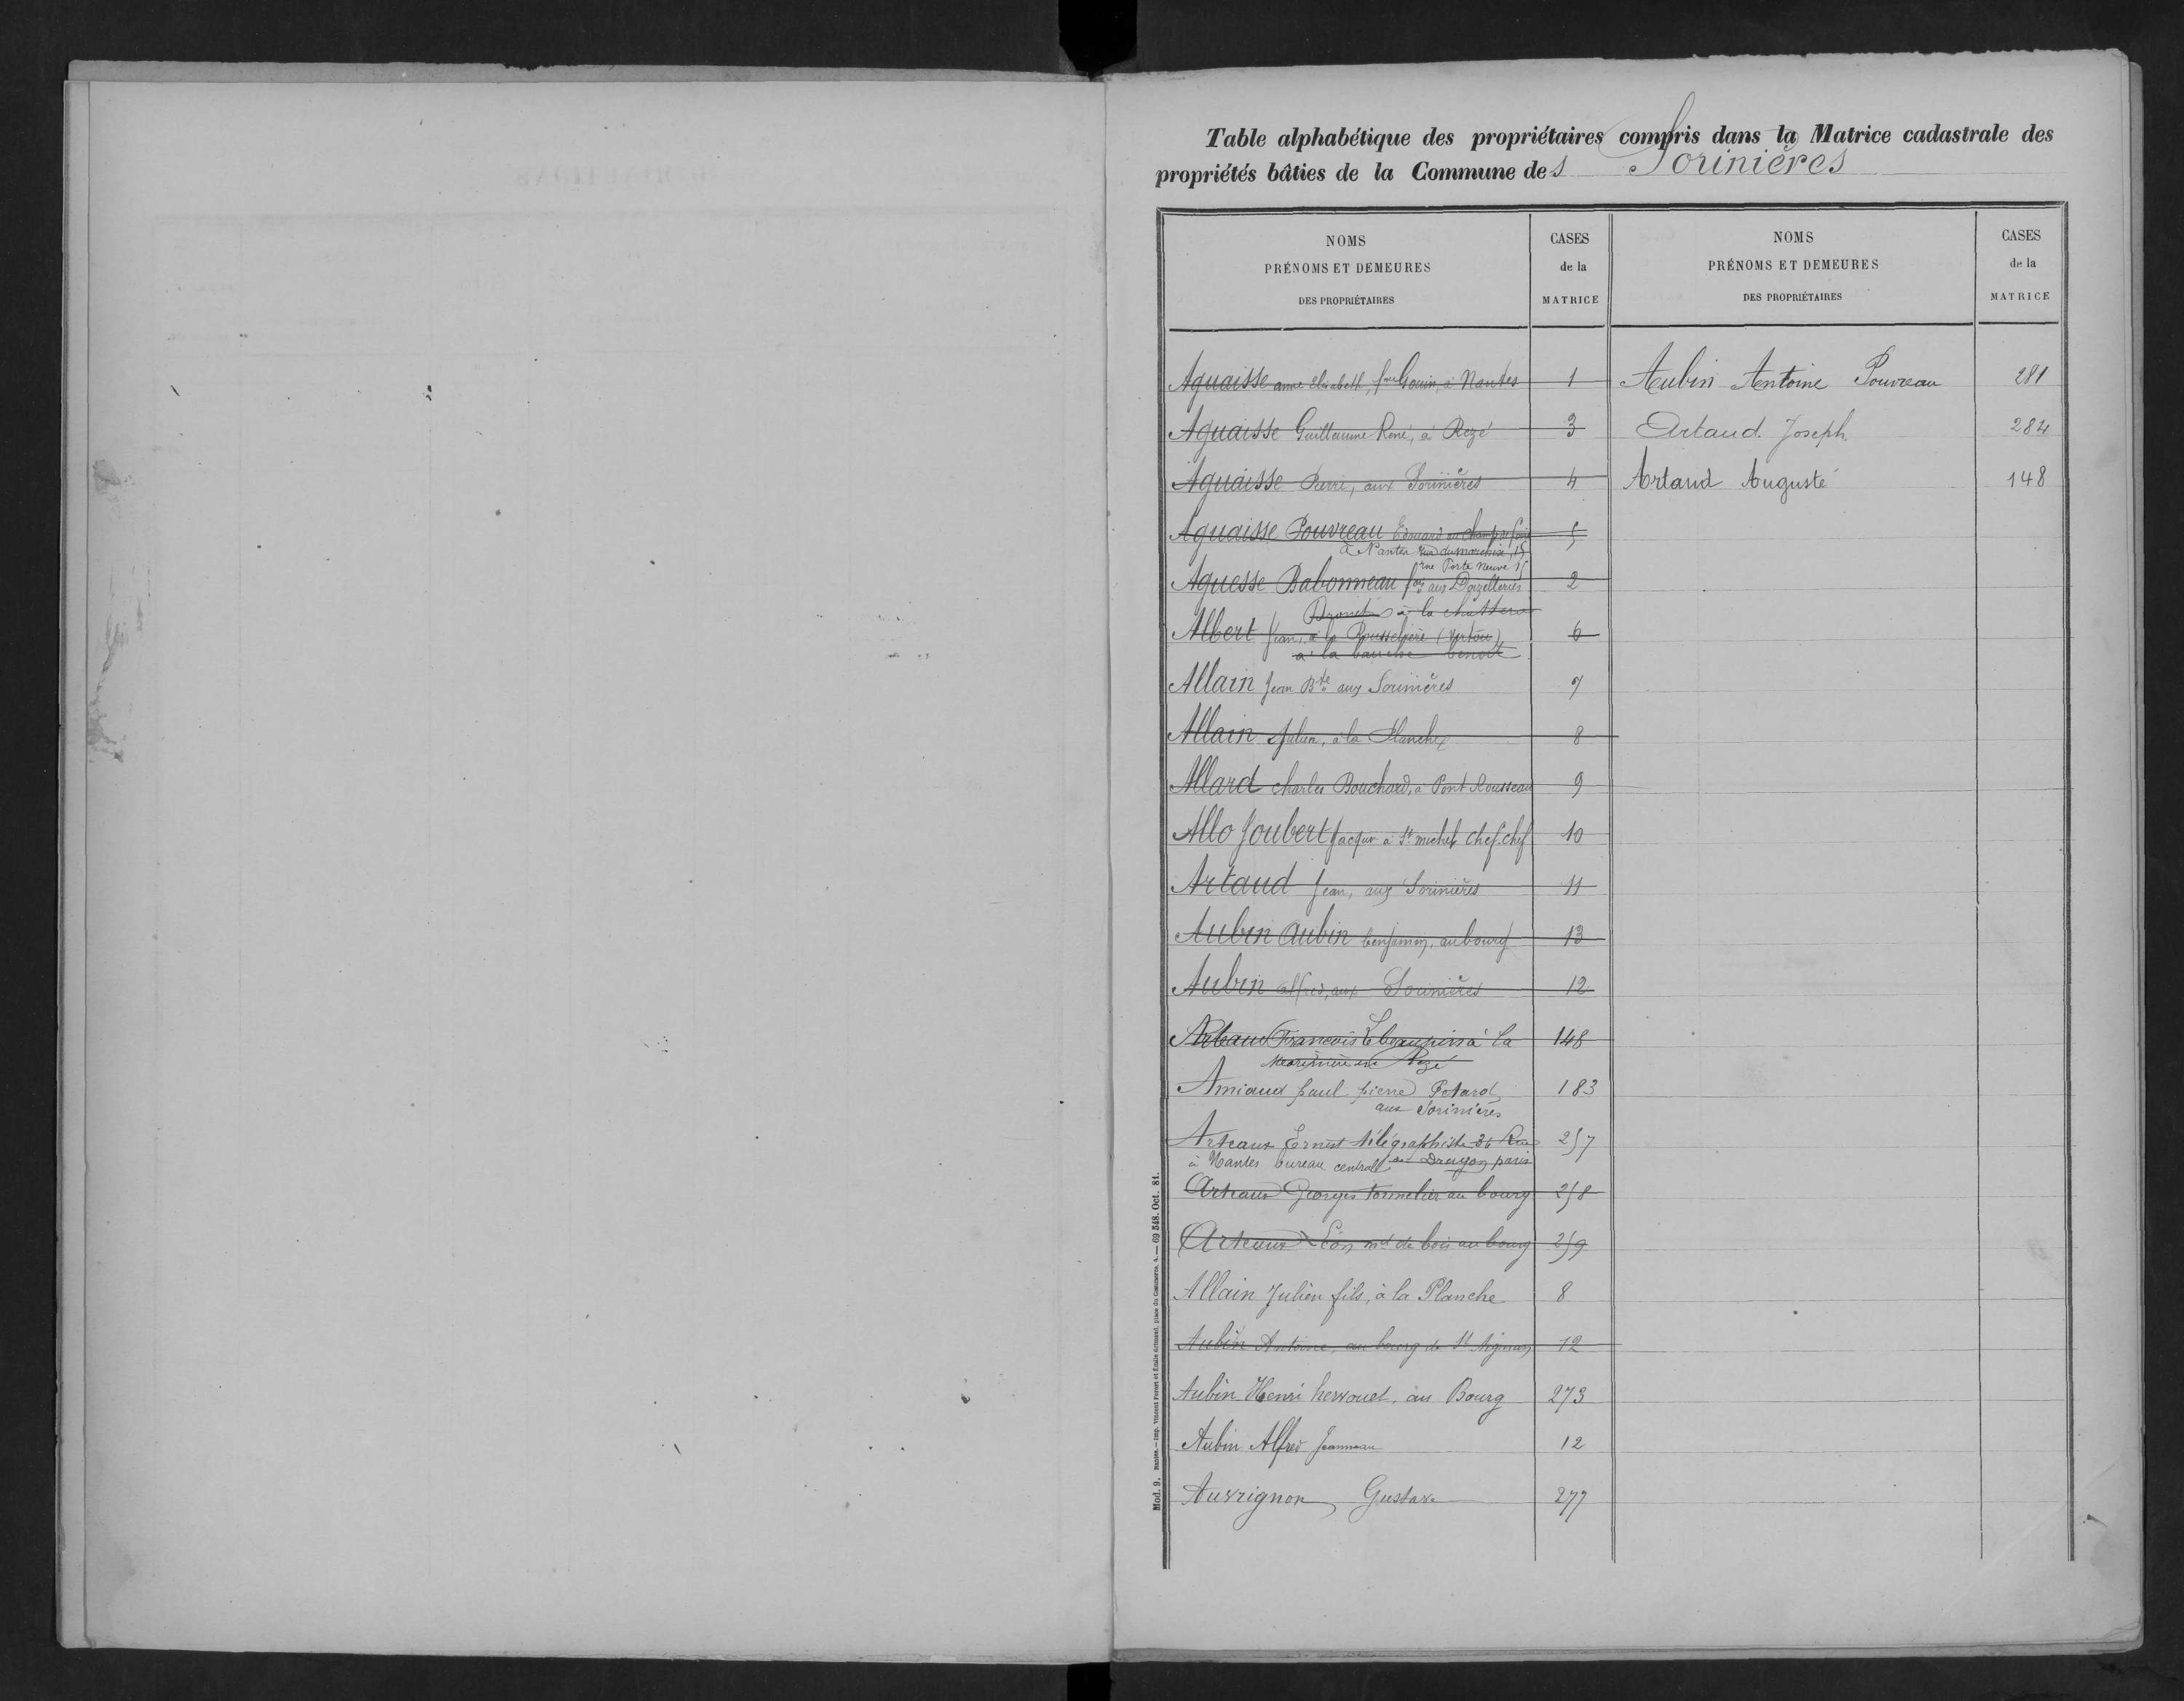 Table alphabétique des propriétaires compris dans la Matrice cadastrale des
propriétés bâties de la Commune des Sorinières
NOMS
PRÉNOMS ET DEMEURES
DES PROPRIÉTAIRES
CASES
de la
MATRICE
NOMS
PRÉNOMS ET DEMEURES
DES PROPRIÉTAIRES
CASES
de la
MATRICE
Aguaisse anne Elisabeth, fme Gouin, à Nantes 1
Aguaisse Guillaume René, à Rezé 3
Aguaisse Pierre, aux Sorinières 4
Aguaisse Pouvreau Edouard au champ de foire 5
à Nantes rue du marchix, 15
rue Porte Neuve 15
Aguesse Babonneau fois aux Dozelleries 2
à la
Albert Jean, à la (Vertou) 6
à la benoit
Allain Jean Bte aux Sorinières 7
Allain Julien, à la Planche 8
Allard charles Bouchard, à Pont Rousseau 9
Allo Joubert Jacques à St michel chef chef 10
Artaud Jean, aux Sorinières 11
Aubin Aubin benjamin, au bourg 13
Aubin alfred, aux Sorinières 12
Arteau François Lebeaupin à la 148
Rezé
Amiaud paul pierre Potard 183
aux Sorinières
Arteaux Ernest télégraphiste 36 Rue 257
à Nantes bureau central du Dragon paris
Arteaux Georges tonnelier au bourg 258
Arteaux Léon md de bois au bourg 259
Allain Julien fils, à la Planche 8
Aubin Antoine, au bourg de St Aignan 12
Aubin Henri hervouet, au Bourg 273
Aubin Alfred Jeanneau 12
Auvrignon Gustave 277
Aubin Antoine Pouvreau 281
Artaud Joseph 284
Artaud Auguste 148
Mod. 9. Nantes. — Imp. Vincent Forest et Émile Grimaud, place du Commerce, 4. — 69 548. Oct. 81.